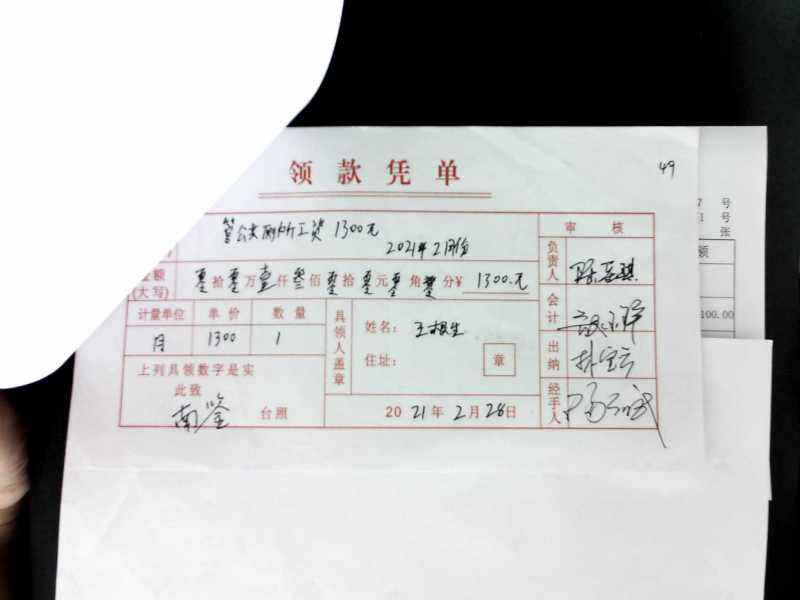 领款凭单
49
管公共厕所工资 1300元
2021年2月份
审核
负责人
金额
(大写)
零拾零万壹仟叁佰零拾零元零角零分¥ 1300.元
会计
计量单位 单价 数量
月 1300 1
具领人盖章
姓名: 王根生
住址:
章
出纳
上列具领数字是实
此致
台照
2021年2月28日
经手人
号
1 号
张
额
100.00